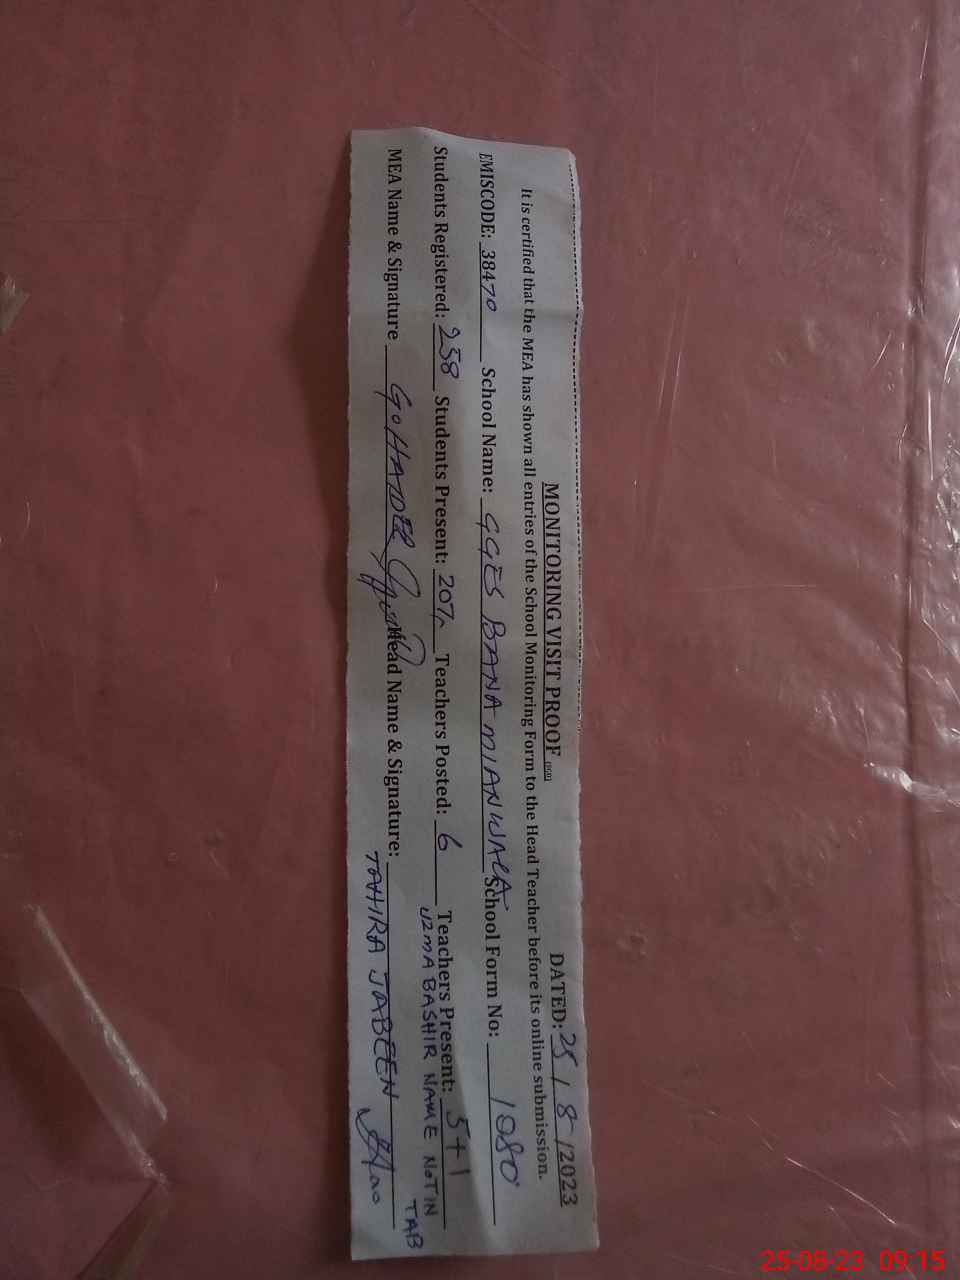 MONITORING VISIT PROOF DATED: 25/8/2023
It is certified that the MEA has shown all entries of the School Monitoring Form to the Head Teacher before its online submission.
EMISCODE: 38470 School Name: GGES BANA MIANWALA School Form No: 1080
Students Registered: 258 Students Present: 207 Teachers Posted: 6 Teachers Present: 5+1
UZMA BASHIR NAME NOT IN TAB
MEA Name & Signature Head Name & Signature: TAHIRA JABEEN
25-08-23 09:15